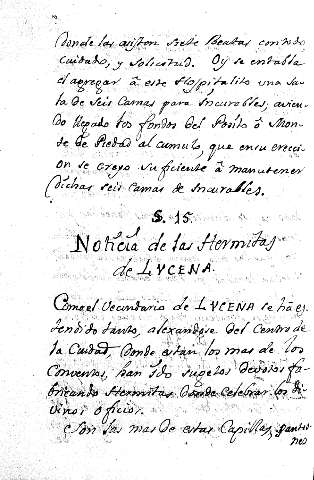 Donde las asisten siete Beatas con todo
cuidado, y solicitud. Oy se entabla
el agregar á este Hospitalito una sa-
la de seis Camas para Incurables, avien-
do llegado los fondos del Posito ô Mon-
te de Piedad al cumulo, que en su erecci-
on se creyo suficiente â manutener
dichas seis camas de Incurables.
S. 15.
Noticia de las Hermitas
de LVCENA.
Como el Vecindario de LVCENA se hâ es-
tendido tanto, alexandose del Centro de
la Ciudad, donde están los mas de los
Conventos, han ido sugetos devotos fa-
bricando Hermitas donde celebrar los di-
vinos oficios.
Son las mas de estas Capillas, y